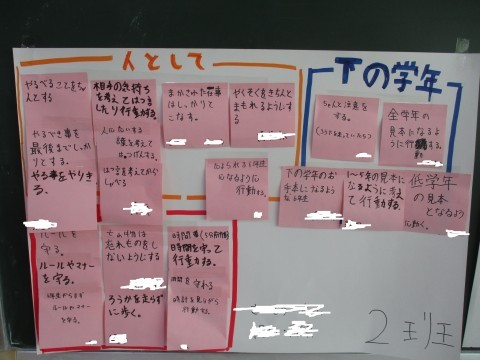 人として
やるべきことをちゃ
んとする
やるべき事を
最後までしっか
りとする。
やる事をやりき
る。
相手の気持ち
を考えてはつき
したり行動がする。
まかされた仕事
はしっかりと
こなす。
やくそくをきちんと
まもれるようにす
る
行動する。
下の学年
ちゃんと注意を
する。
全学年の
見本になるよう
下の学年のお
手本になるような
1〜5年の見本に
なるように考え
て行動する。
低学年
の見本
となるよう
に動く。
ルールを
守る。
ルールやマナー
を守る。
忘れものをし
ないようにする
ろうかを走らず
に歩く。
時間を守って
行動する。
時間を守れる
時計を見ながら
行動する。
2班